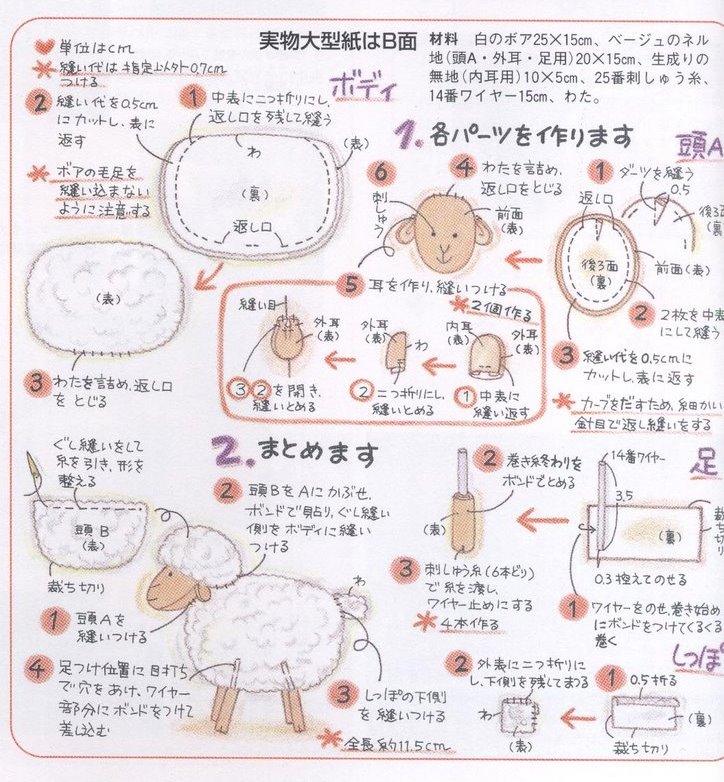 実物大型紙はB面
材料 白のボア25×15cm、ベージュのネル
地(頭A・外耳・足用)20×15cm、生成りの
無地(内耳用)10×5cm、25番刺しゅう糸、
14番ワイヤー15cm、わた。
単位はcm
縫い代は指定以外0.7cm
つける
1.各パーツを作ります
ボディ
① 中表に二つ折りにし、
返し口を残して縫う
② 縫い代を0.5cm
にカットし、表に
返す
ボアの毛足を
縫い込まない
ように注意する
わ
(表)
(裏)
返し口
(表)
③ わたを詰め、返し口
をとじる
頭A
① ダーツを縫う
0.5
返し口
後ろ面
(裏)
前面(表)
② 2枚を中表
にして縫う
③ 縫い代を0.5cmに
カットし、表に返す
カーブをだすため、細かい
針目で返し縫いをする
④ わたを詰め、
返し口をとじる
前面
(表)
⑥ 刺しゅう
⑤ 耳を作り、縫いつける
2個作る
内耳
(表)
外耳
(表)
① 中表に
縫い返す
外耳
(表)
わ
② 二つ折りにし、
縫いとめる
縫い目
外耳
(表)
③ ②を開き、
縫いとめる
足
14番ワイヤー
3.5
(裏)
裁ち切り
0.3控えてのせる
① ワイヤーをのせ、巻き始め
にボンドをつけてくるくる
巻く
② 巻き終わりを
ボンドでとめる
(表)
③ 刺しゅう糸(6本どり)
で糸を渡し、
ワイヤー止めにする
4本作る
しっぽ
① 0.5折る
(裏)
裁ち切り
② 外表に二つ折りに
し、下側を残してまつる
わ
(表)
2.まとめます
ぐし縫いをして
糸を引き、形を
整える
頭B
(表)
裁ち切り
① 頭Aを
縫いつける
② 頭BをAにかぶせ、
ボンドで貼り、ぐし縫い
側をボディに縫い
つける
わ
③ しっぽの下側
を縫いつける
④ 足つけ位置に目打ち
で穴をあけ、ワイヤー
部分にボンドをつけて
差し込む
全長約11.5cm